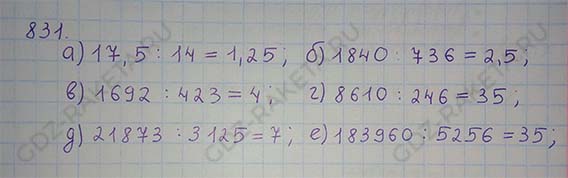 831.
а) 17,5 : 14 = 1,25; б) 1840 : 736 = 2,5;
в) 1692 : 423 = 4; г) 8610 : 246 = 35;
д) 21873 : 3125 = 7; е) 183960 : 5256 = 35;
GDZ-RAKETA.RU